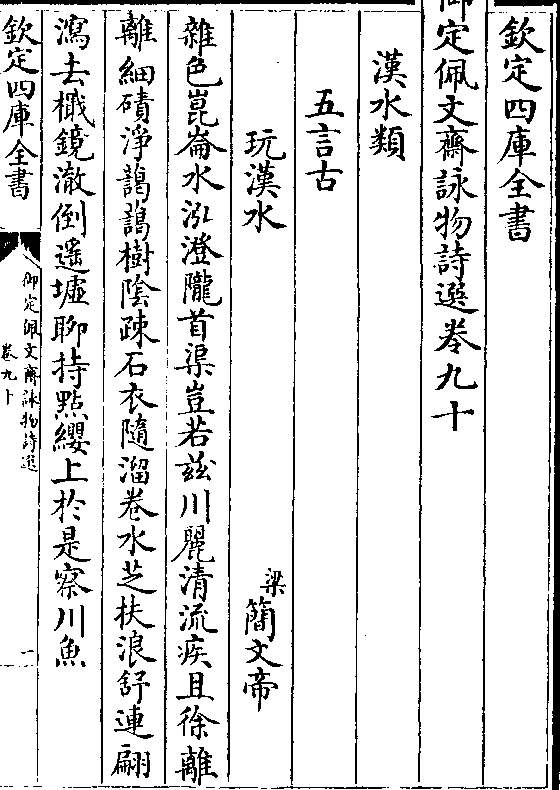 欽定四庫全書
御定佩文齋詠物詩選卷九十
漢水類
五言古
玩漢水
梁簡文帝
雜色崑崙水泓澄隴首渠豈若兹川麗清流疾且徐離
離細磧淨藹藹樹陰疎石衣隨溜卷水芝扶浪舒連翩
瀉去檝鏡澈倒遥墟聊持㸃纓上於是察川魚
欽定四庫全書
御定佩文齋詠物詩選
卷九十
一